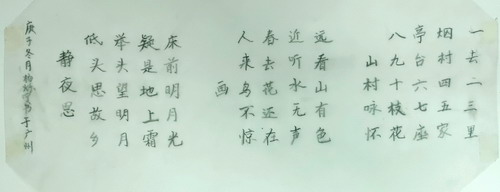 一去二三里
烟村四五家
亭台六七座
八九十枝花
山村咏怀
远看山有色
近听水无声
春去花还在
人来鸟不惊
画
床前明月光
疑是地上霜
举头望明月
低头思故乡
静夜思
庚子冬月柳妙书于广州